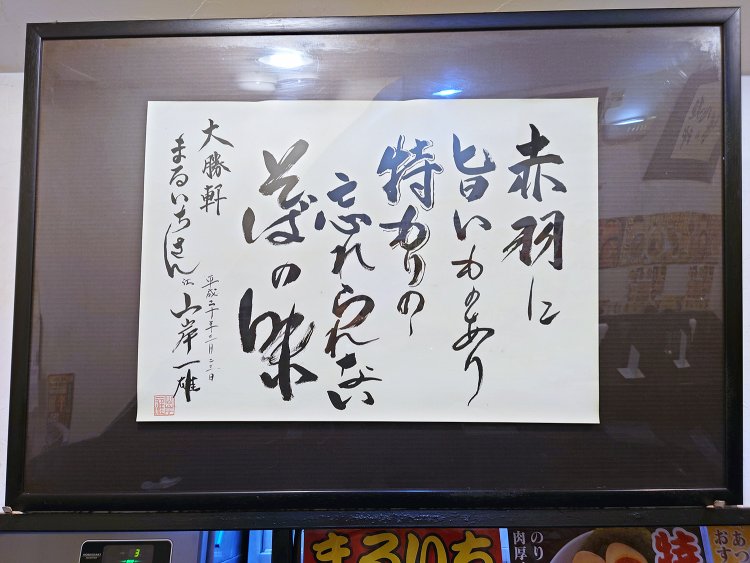 赤羽に
旨いものあり
特もりの
忘れられない
そばの味
大勝軒
まるいちさん江
平成二十年
山岸一雄
HOSHIZAKI
3
まるいち
のり
肉厚
特
あつ
おす